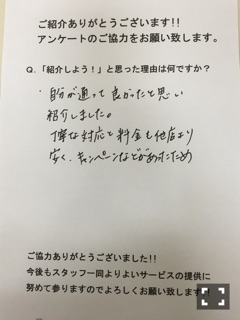 ご紹介ありがとうございます!!
アンケートのご協力をお願い致します。
Q.「紹介しよう！」と思った理由は何ですか？
・自分が通って良かったと思い
紹介しました。
丁寧な対応と料金も他店より
安く、キャンペーンなどがあったため
ご協力ありがとうございました!!
今後もスタッフ一同よりよいサービスの提供に
努めて参りますのでよろしくお願い致します。